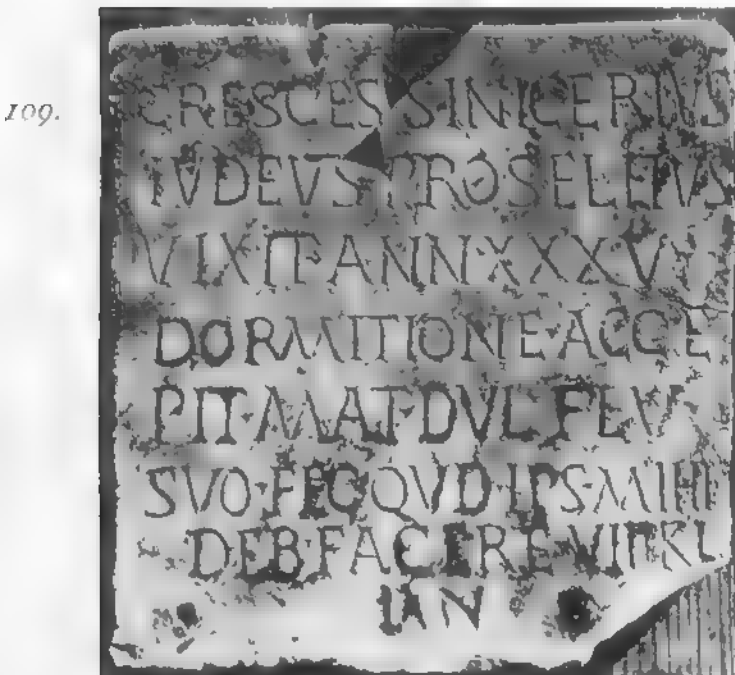 109.
CRESCES SINICERIVS
IVDEVS PROSELETVS
VIXIT ANN XXXV
DORMITIONE ACCE
PIT MAT DVL F
SVO FEC QVD IPS MIHI
DEB FACERE VIII KL
IAN